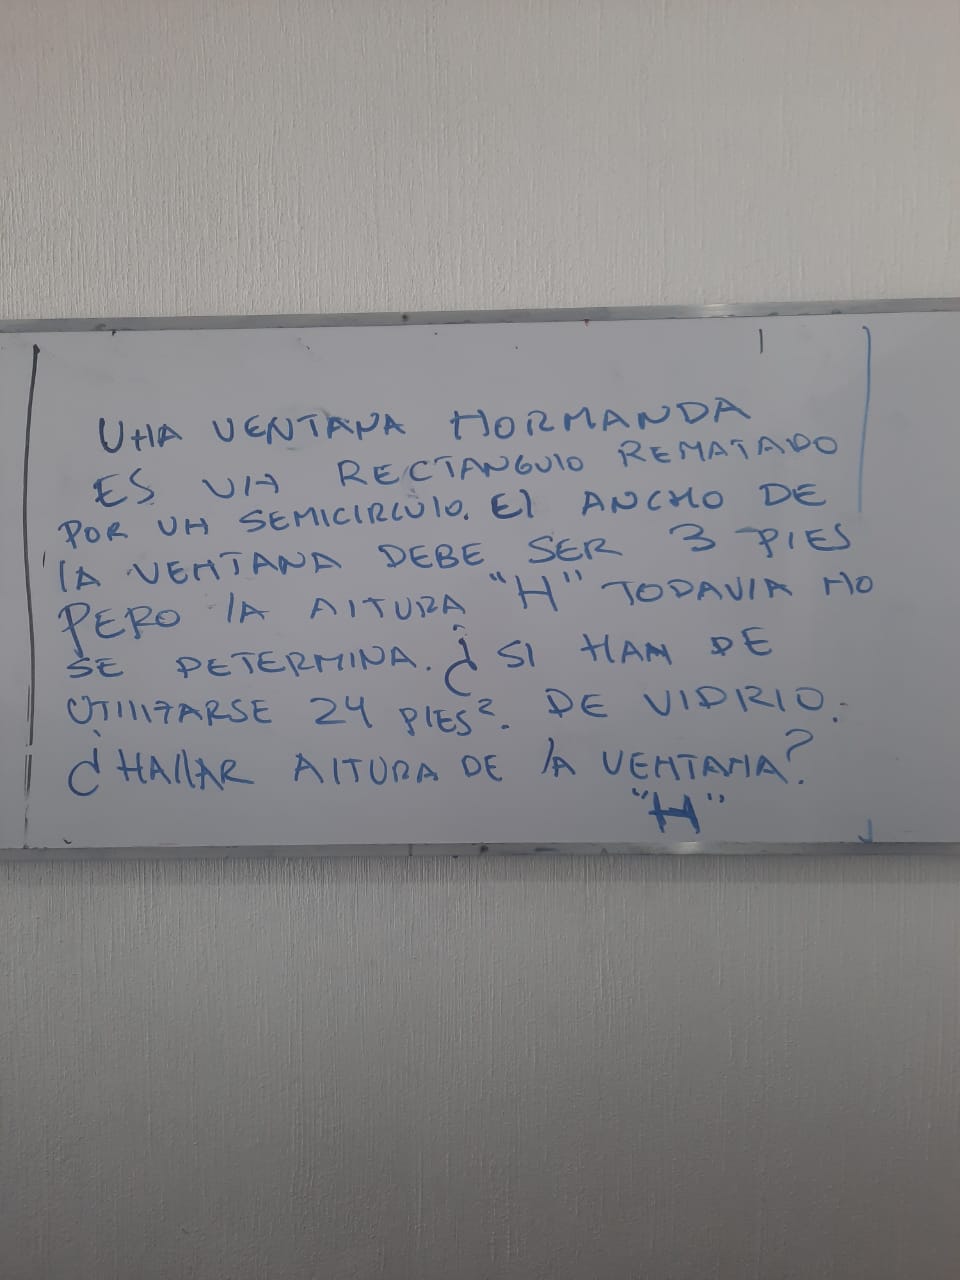 UNA VENTANA NORMANDA
ES UN RECTANGULO REMATADO
POR UN SEMICIRCULO. El ANCHO DE
lA VENTANA DEBE SER 3 PIES
PERO lA AlTURA "H" TODAVIA NO
SE DETERMINA. ¿ SI HAN DE
UTIlIZARSE 24 PIES². DE VIDRIO.
¿HAllAR AlTURA DE lA VENTANA?
"H"